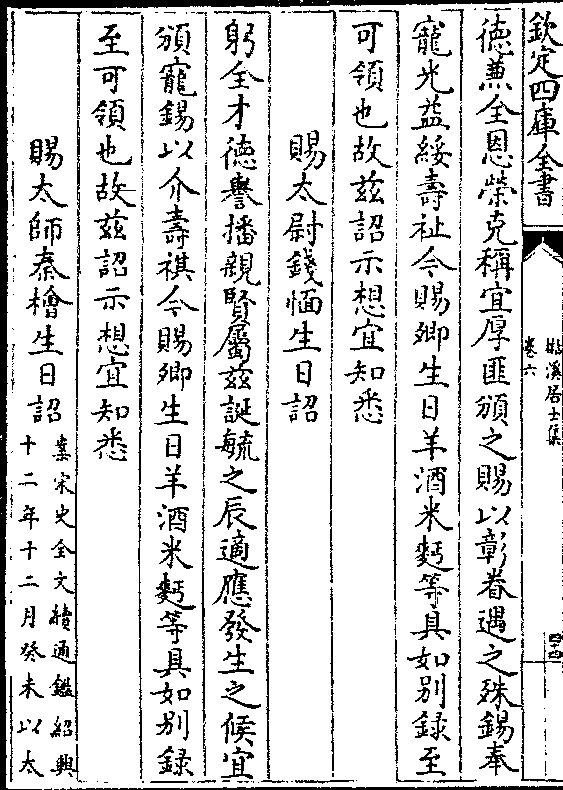 欽定四庫全書
苕溪居士集
卷六
四十四
徳兼全恩榮克稱宜厚匪頒之賜以彰眷遇之殊錫奉
寵光益綏壽祉今賜卿生日羊酒米麫等具如别錄至
可領也故兹詔示想宜知悉
賜太尉錢愐生日詔
躬全才徳譽播親賢屬兹誕毓之辰適應發生之候宜
頒寵錫以介壽祺今賜卿生日羊酒米麫等具如别録
至可領也故兹詔示想宜知悉
賜太師秦檜生日詔
案宋史全文續通鑑紹興
十二年十二月癸未以太